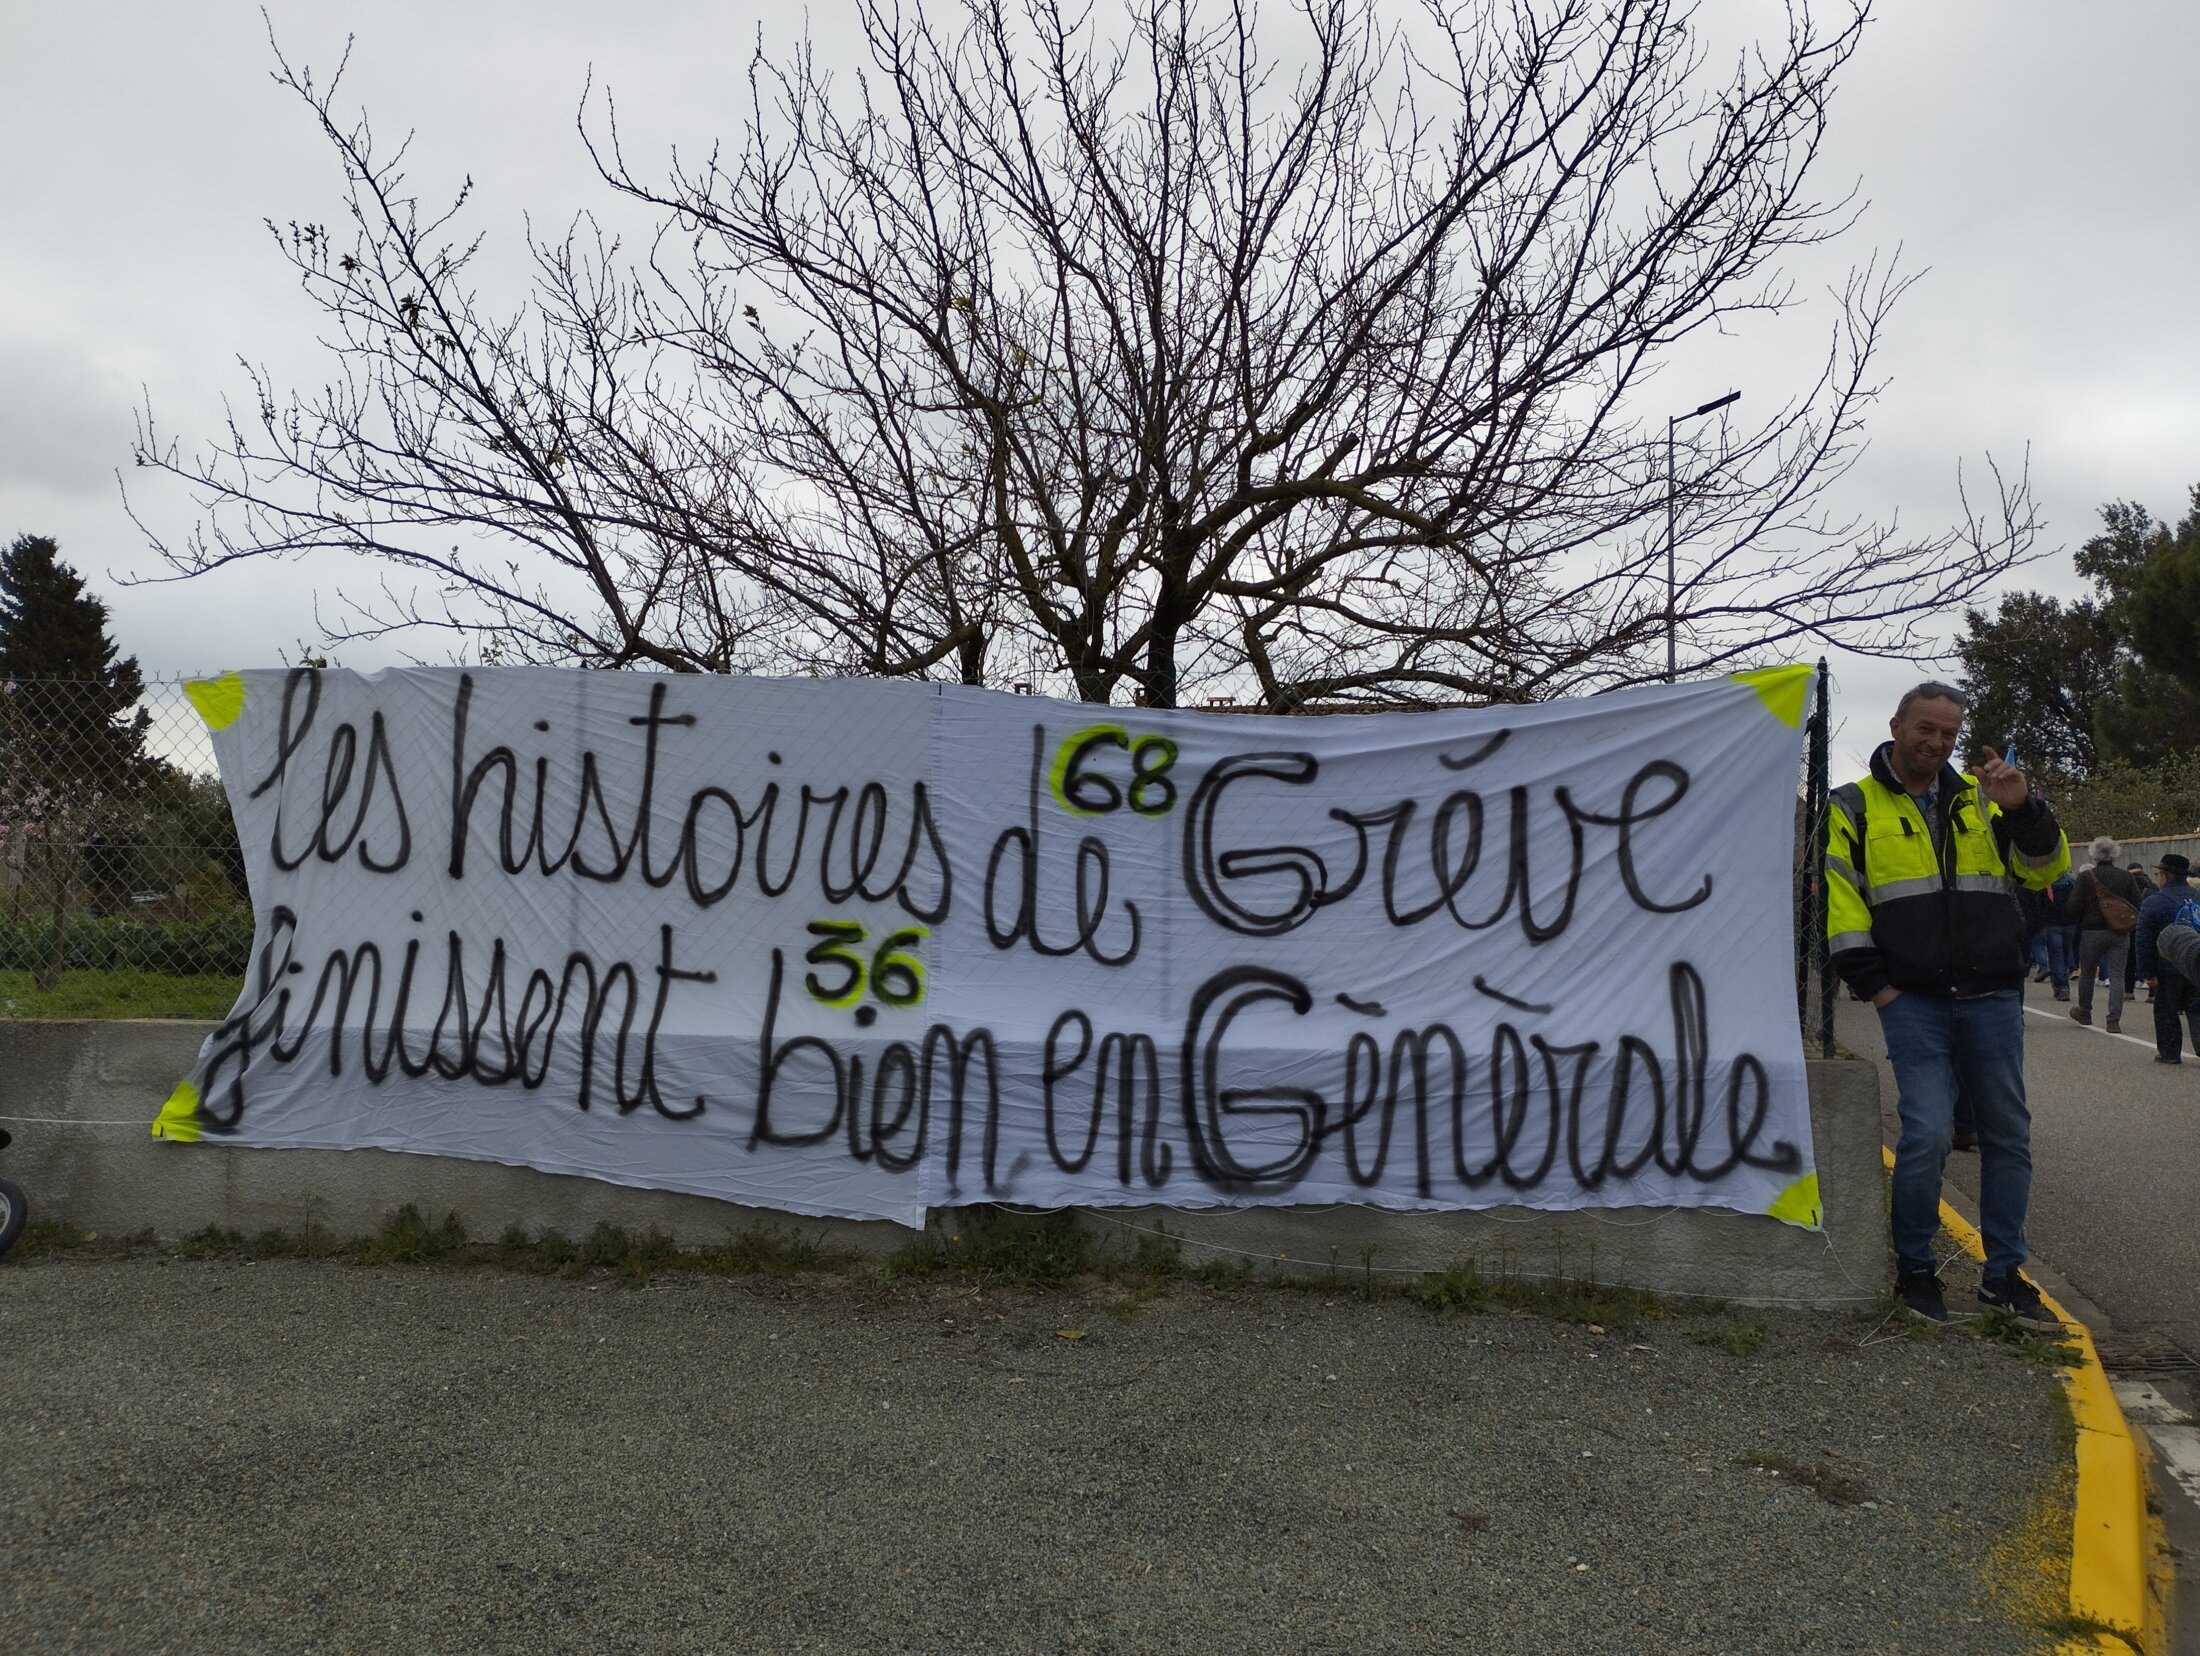 les histoires de 68 Gréve
finissent bien 36 en Gènèrale